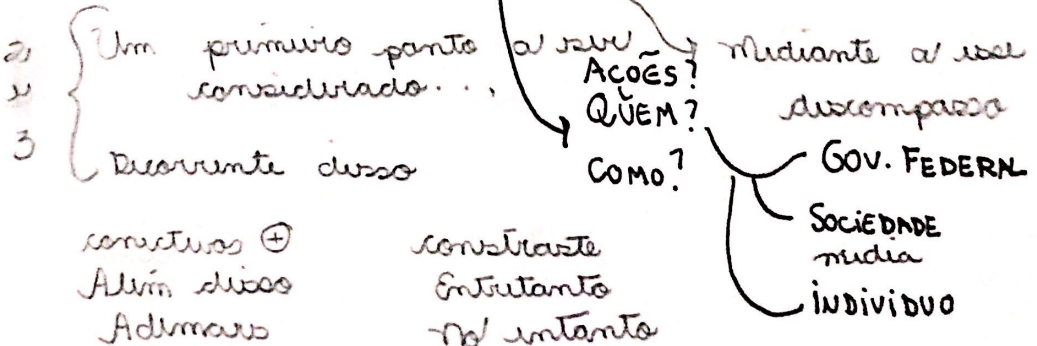 2, { Um primeiro ponto a ser
1 considerado...,
3 Decorrente disso
AÇÕES?
QUEM?
COMO?
Mediante a esse
descompasso
GOV. FEDERAL
SOCIEDADE
mídia
INDIVIDUO
conectivos ⊕
Além disso
Ademais
constraste
Entretanto
No entanto